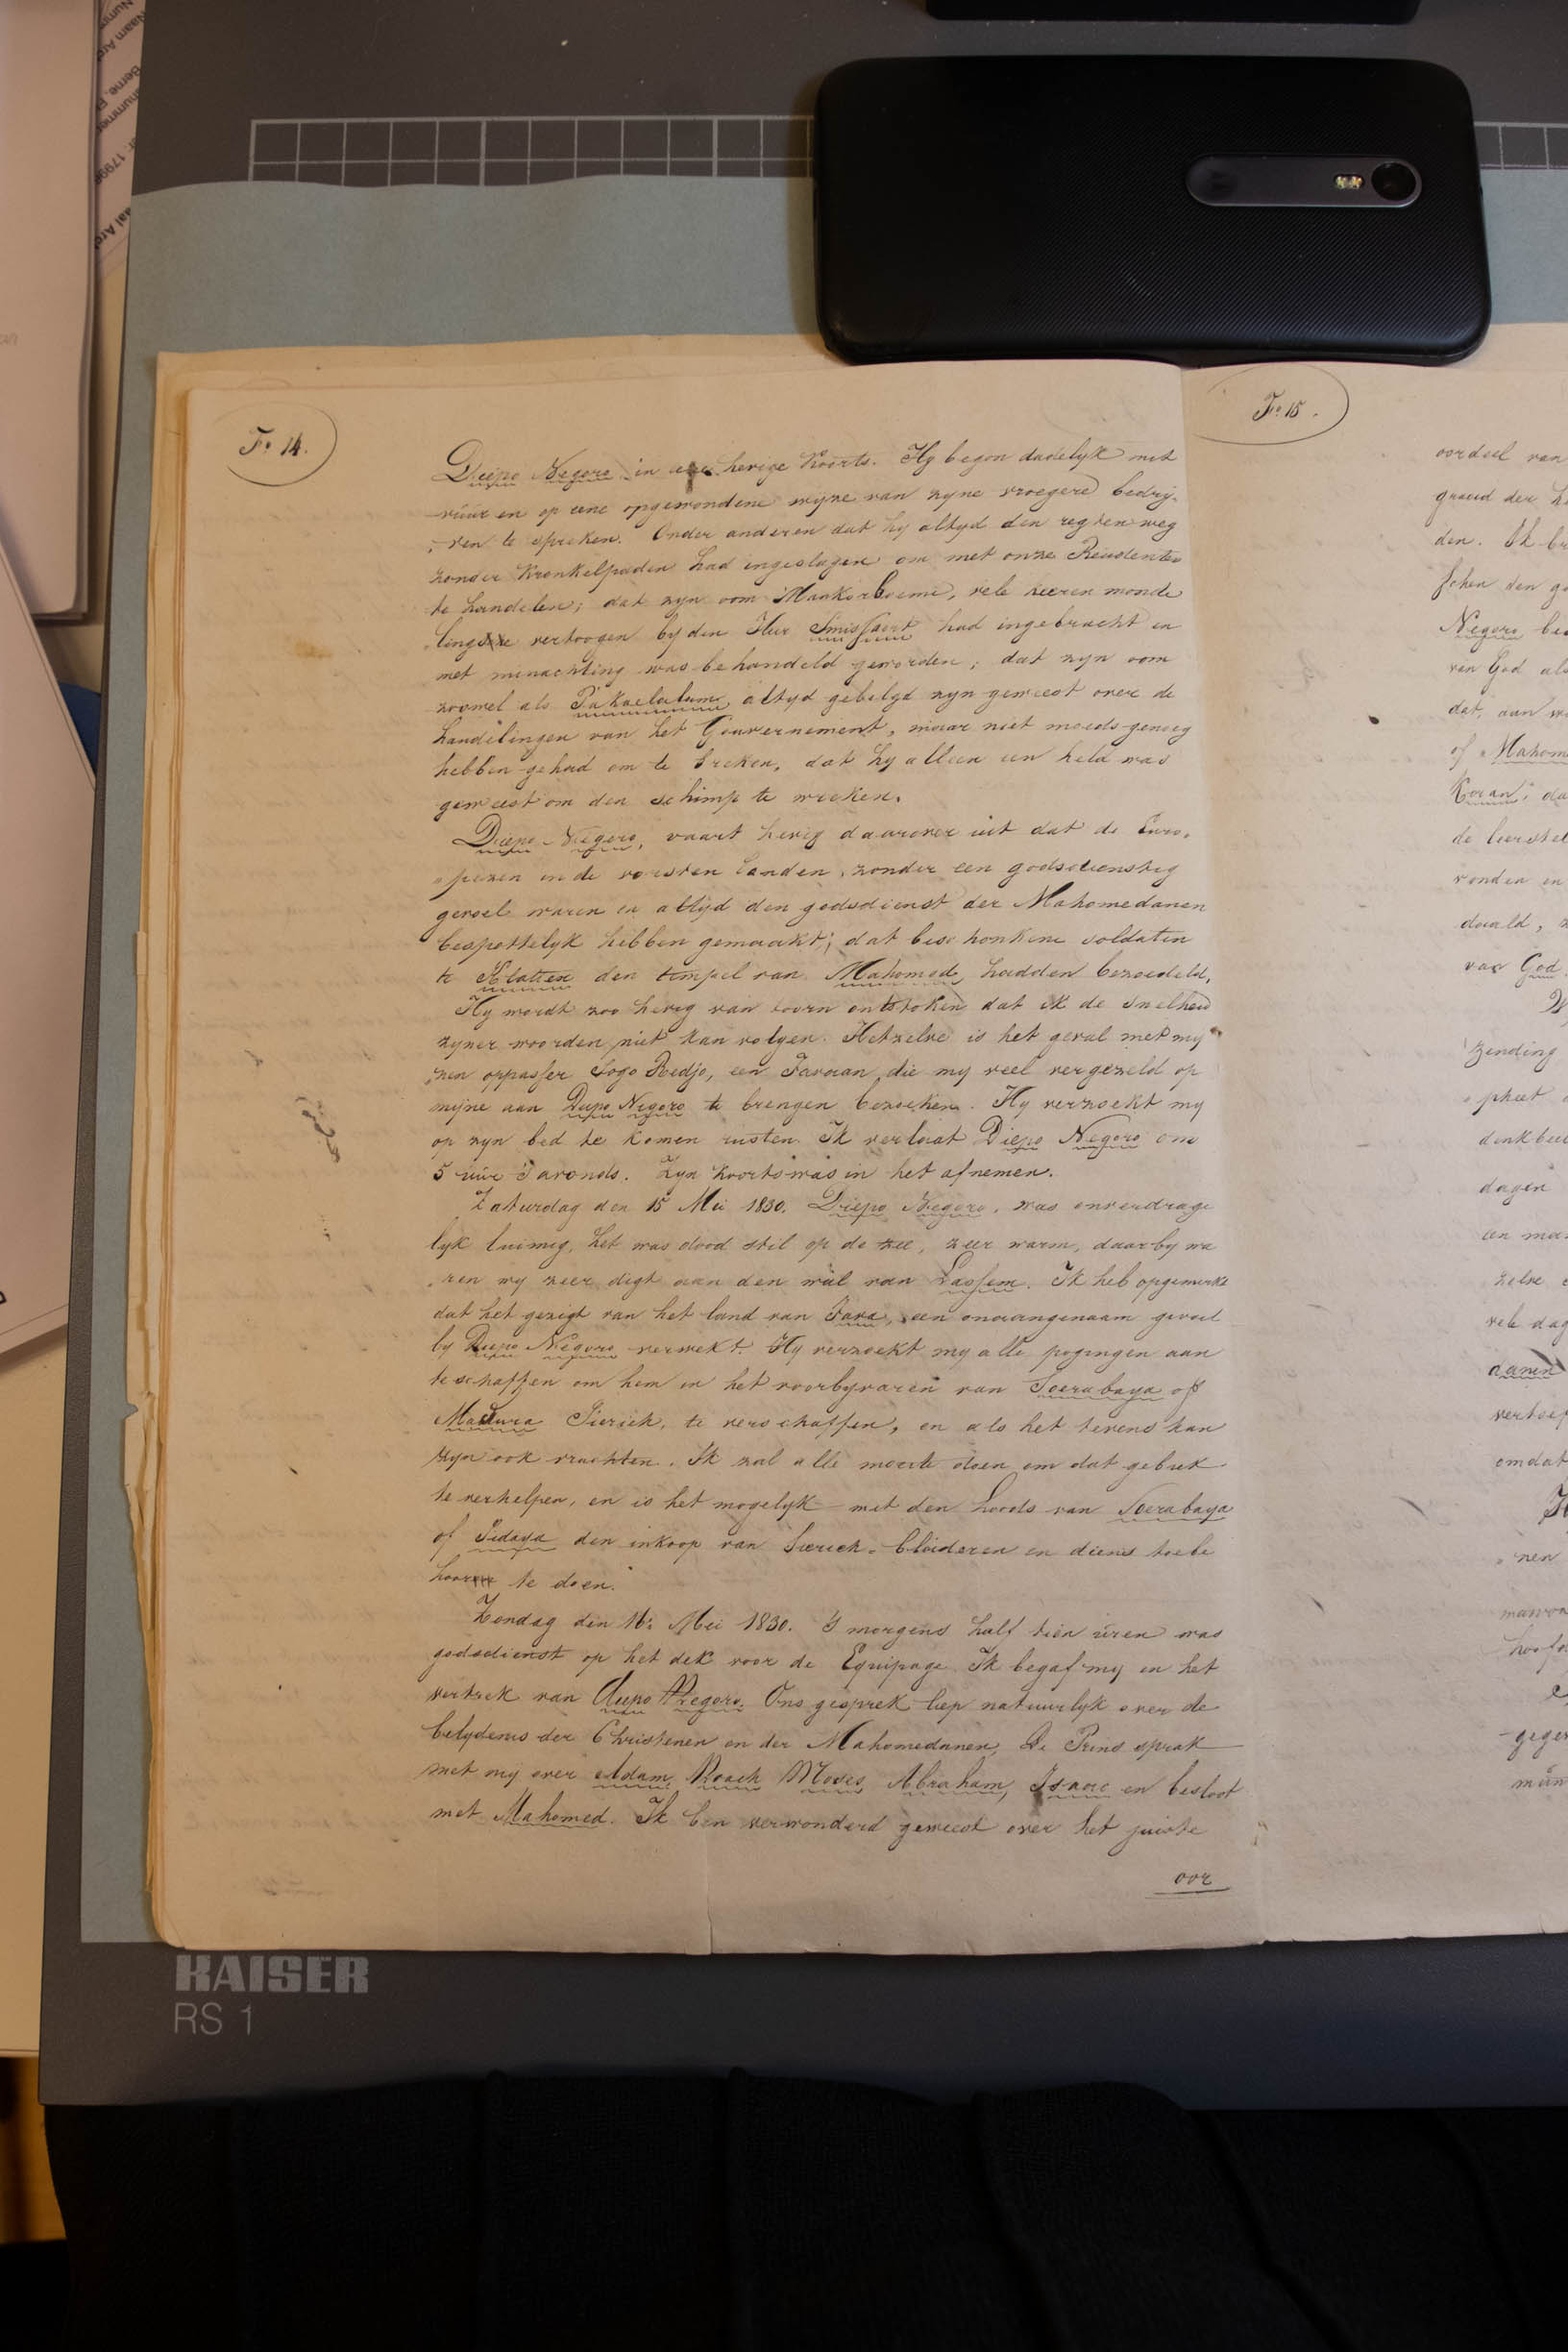 Fo. 14.
Diepo Negoro in eene hevige koorts. Hy begon dadelyk met
vuur en op eene opgewondene wyze van zyne vroegere bedry-
ven te spreken. Onder anderen dat hy altyd den regten weg
zonder kronkelpaden had ingeslagen om met onze Residenten
te handelen; dat zyn oom Mankoeboemi, vele keeren monde
lingsche vertoogen by den Heer Smissaert had ingebracht en
met minachting was behandeld geworden; dat zyn oom
zoowel als Pakoealam altyd gebelgd zyn geweest over de
handelingen van het Gouvernement, maar niet moeds genoeg
hebben gehad om te breken, dat hy alleen een held was
geweest om den schimp te wreken.
Diepo Negoro, vaart hevig daarover uit dat de Euro-
pezen in de vorsten landen, zonder een godsdienstig
gevoel waren en altijd den godsdienst der Mahomedanen
bespottelyk hebben gemaakt; dat beschonkene soldaten
te Klatten den tempel van Mahomed, hadden bezoedeld.
Hy wordt zoo hevig van toorn ontstoken dat ik de snelheid
zyner woorden niet kan volgen. Hetzelve is het geval met my
nen oppasser Sogo Redjo, een Javaan die my veel vergezeld op
mijne aan Diepo Negoro te brengen bezoeken. Hy verzoekt my
op zyn bed te komen rusten. Ik verlaat Diepo Negoro om
5 uur 's avonds. Zyn koorts was in het afnemen.
Zaturdag den 15 Mei 1830. Diepo Negoro, was onverdrage
lyk luimig, het was dood stil op de zee, zeer warm, daarby wa
ren wy zeer digt aan den wal van Lassem. Ik heb opgemerkt
dat het gezigt van het land van Java, een onaangenaam gevoel
by Diepo Negoro verwekt. Hy verzoekt my alle pogingen aan
te schaffen om hem in het voorbyvaren van Soerabaya of
Madura Sierich, te verschaffen, en als het tevens kan
zyn ook vruchten. Ik zal alle moeite doen om dat gebrek
te verhelpen, en is het mogelyk met den loods van Soerabaya
of Sidayo den inkoop van Sierich-bladeren en diens toebe
hooren te doen.
Zondag den 16. Mei 1830. 's morgens half tien uren was
godsdienst op het dek voor de Equipage. Ik begaf my in het
vertrek van Diepo Negoro. Ons gesprek liep natuurlyk over de
belydenis der Christenen en der Mahomedanen. De Prins sprak
met my over Adam, Noach Moses, Abraham, Isaac en besloot
met Mahomed. Ik ben verwonderd geweest over het juiste
oor
Fo. 15.
oordeel van
den. Ik
Negoro
van God als
dat, aan
of Mahom
Koran, da
de leerstel
vonden en
van God
zending
dagen
een man
zelve
vele dag
omdat
KAISER
RS 1